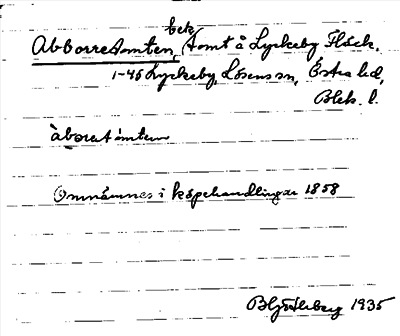 Abborretomten, bek. tomt å Lyckeby Fläck,
1-45 Lyckeby, Lösens sn, Östra hd,
Blek. l.
àboratómten
Omnämnes i köpehandlingar 1858
1935